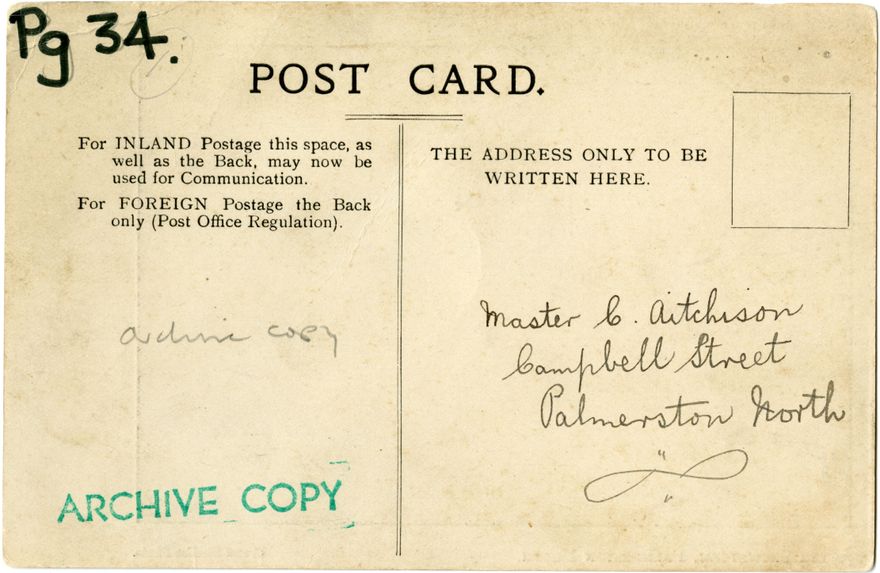 Pg 34.
POST CARD.
For INLAND Postage this space, as
well as the Back, may now be
used for Communication.
For FOREIGN Postage the Back
only (Post Office Regulation).
THE ADDRESS ONLY TO BE
WRITTEN HERE.
archive copy
Master C. Aitchison
Campbell Street
Palmerston North
ARCHIVE COPY